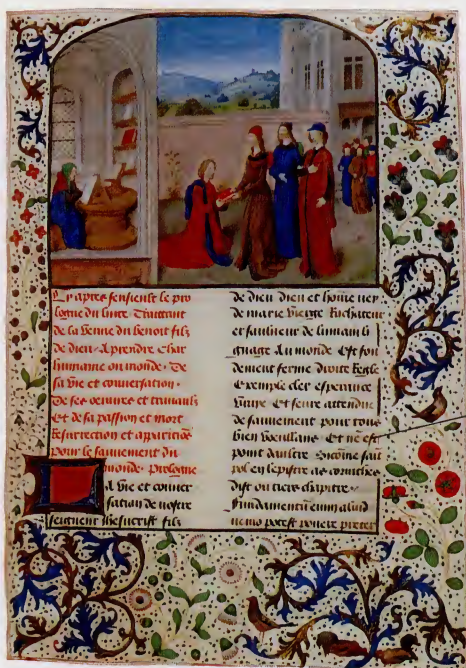 Cy apres sensieult le pro
logue du liure Traittant
de la venue du benoit filz
de dieu. Aprendre char
humaine ou monde. De
sa vie et conuersation.
De ses oeuures et trauaulz
Et de sa passion et mort
Resurrection et aparition
pour le sauuement du
monde. Prologue
La vie et conuer
sation de nostre
seigneur ihesucrist filz
de dieu dieu et home ney
de marie vierge Rachateur
et sauueur de lumain li
gnage Au monde Est fon
dement ferme droite Reigle
Exemple cler esperance
vraye Et seure attendue
de sauuement pour tous
bien voeullans Et ne est
point daultre Sicome saīt
pol en lepistre as corinthes
dist ou tiers chapitre.
Fundamentū enim aliud
nemo potest ponere preter